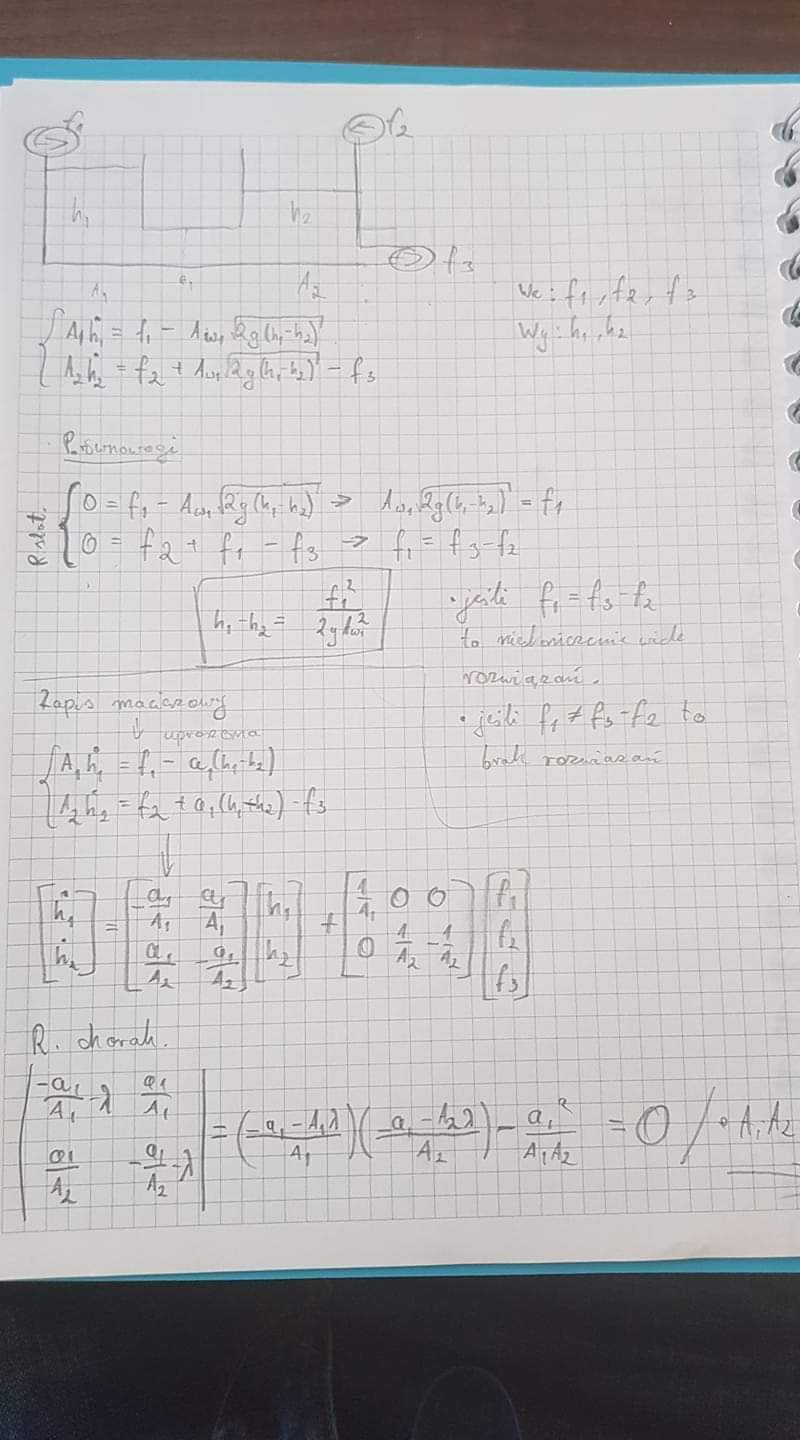 f₁ f₂
h₁ h₂
f₃
A₁ a₁ A₂
We: f₁, f₂, f₃
Wy: h₁, h₂
{ A₁ḣ₁ = f₁ - A_w₁ √(2g(h₁-h₂))
A₂ḣ₂ = f₂ + A_w₁ √(2g(h₁-h₂)) - f₃
Równowagi
R. stat.
{ 0 = f₁ - A_w₁ √(2g(h₁-h₂)) → A_w₁ √(2g(h₁-h₂)) = f₁
0 = f₂ + f₁ - f₃ → f₁ = f₃ - f₂
h₁ - h₂ = f₁² / (2g A_w₁²)
• jeśli f₁ = f₃ - f₂
to nieskończenie wiele
rozwiązań.
• jeśli f₁ ≠ f₃ - f₂ to
brak rozwiązań
Zapis macierzowy
↓ uproszona
{ A₁ḣ₁ = f₁ - a₁(h₁-h₂)
A₂ḣ₂ = f₂ + a₁(h₁-h₂) - f₃
↓
[ḣ₁; ḣ₂] = [-a₁/A₁ a₁/A₁; a₁/A₂ -a₁/A₂] [h₁; h₂] + [1/A₁ 0 0; 0 1/A₂ -1/A₂] [f₁; f₂; f₃]
R. charak.
|-a₁/A₁ - λ a₁/A₁; a₁/A₂ -a₁/A₂ - λ| = ((-a₁ - A₁λ)/A₁)((-a₁ - A₂λ)/A₂) - a₁²/(A₁A₂) = 0 / • A₁A₂